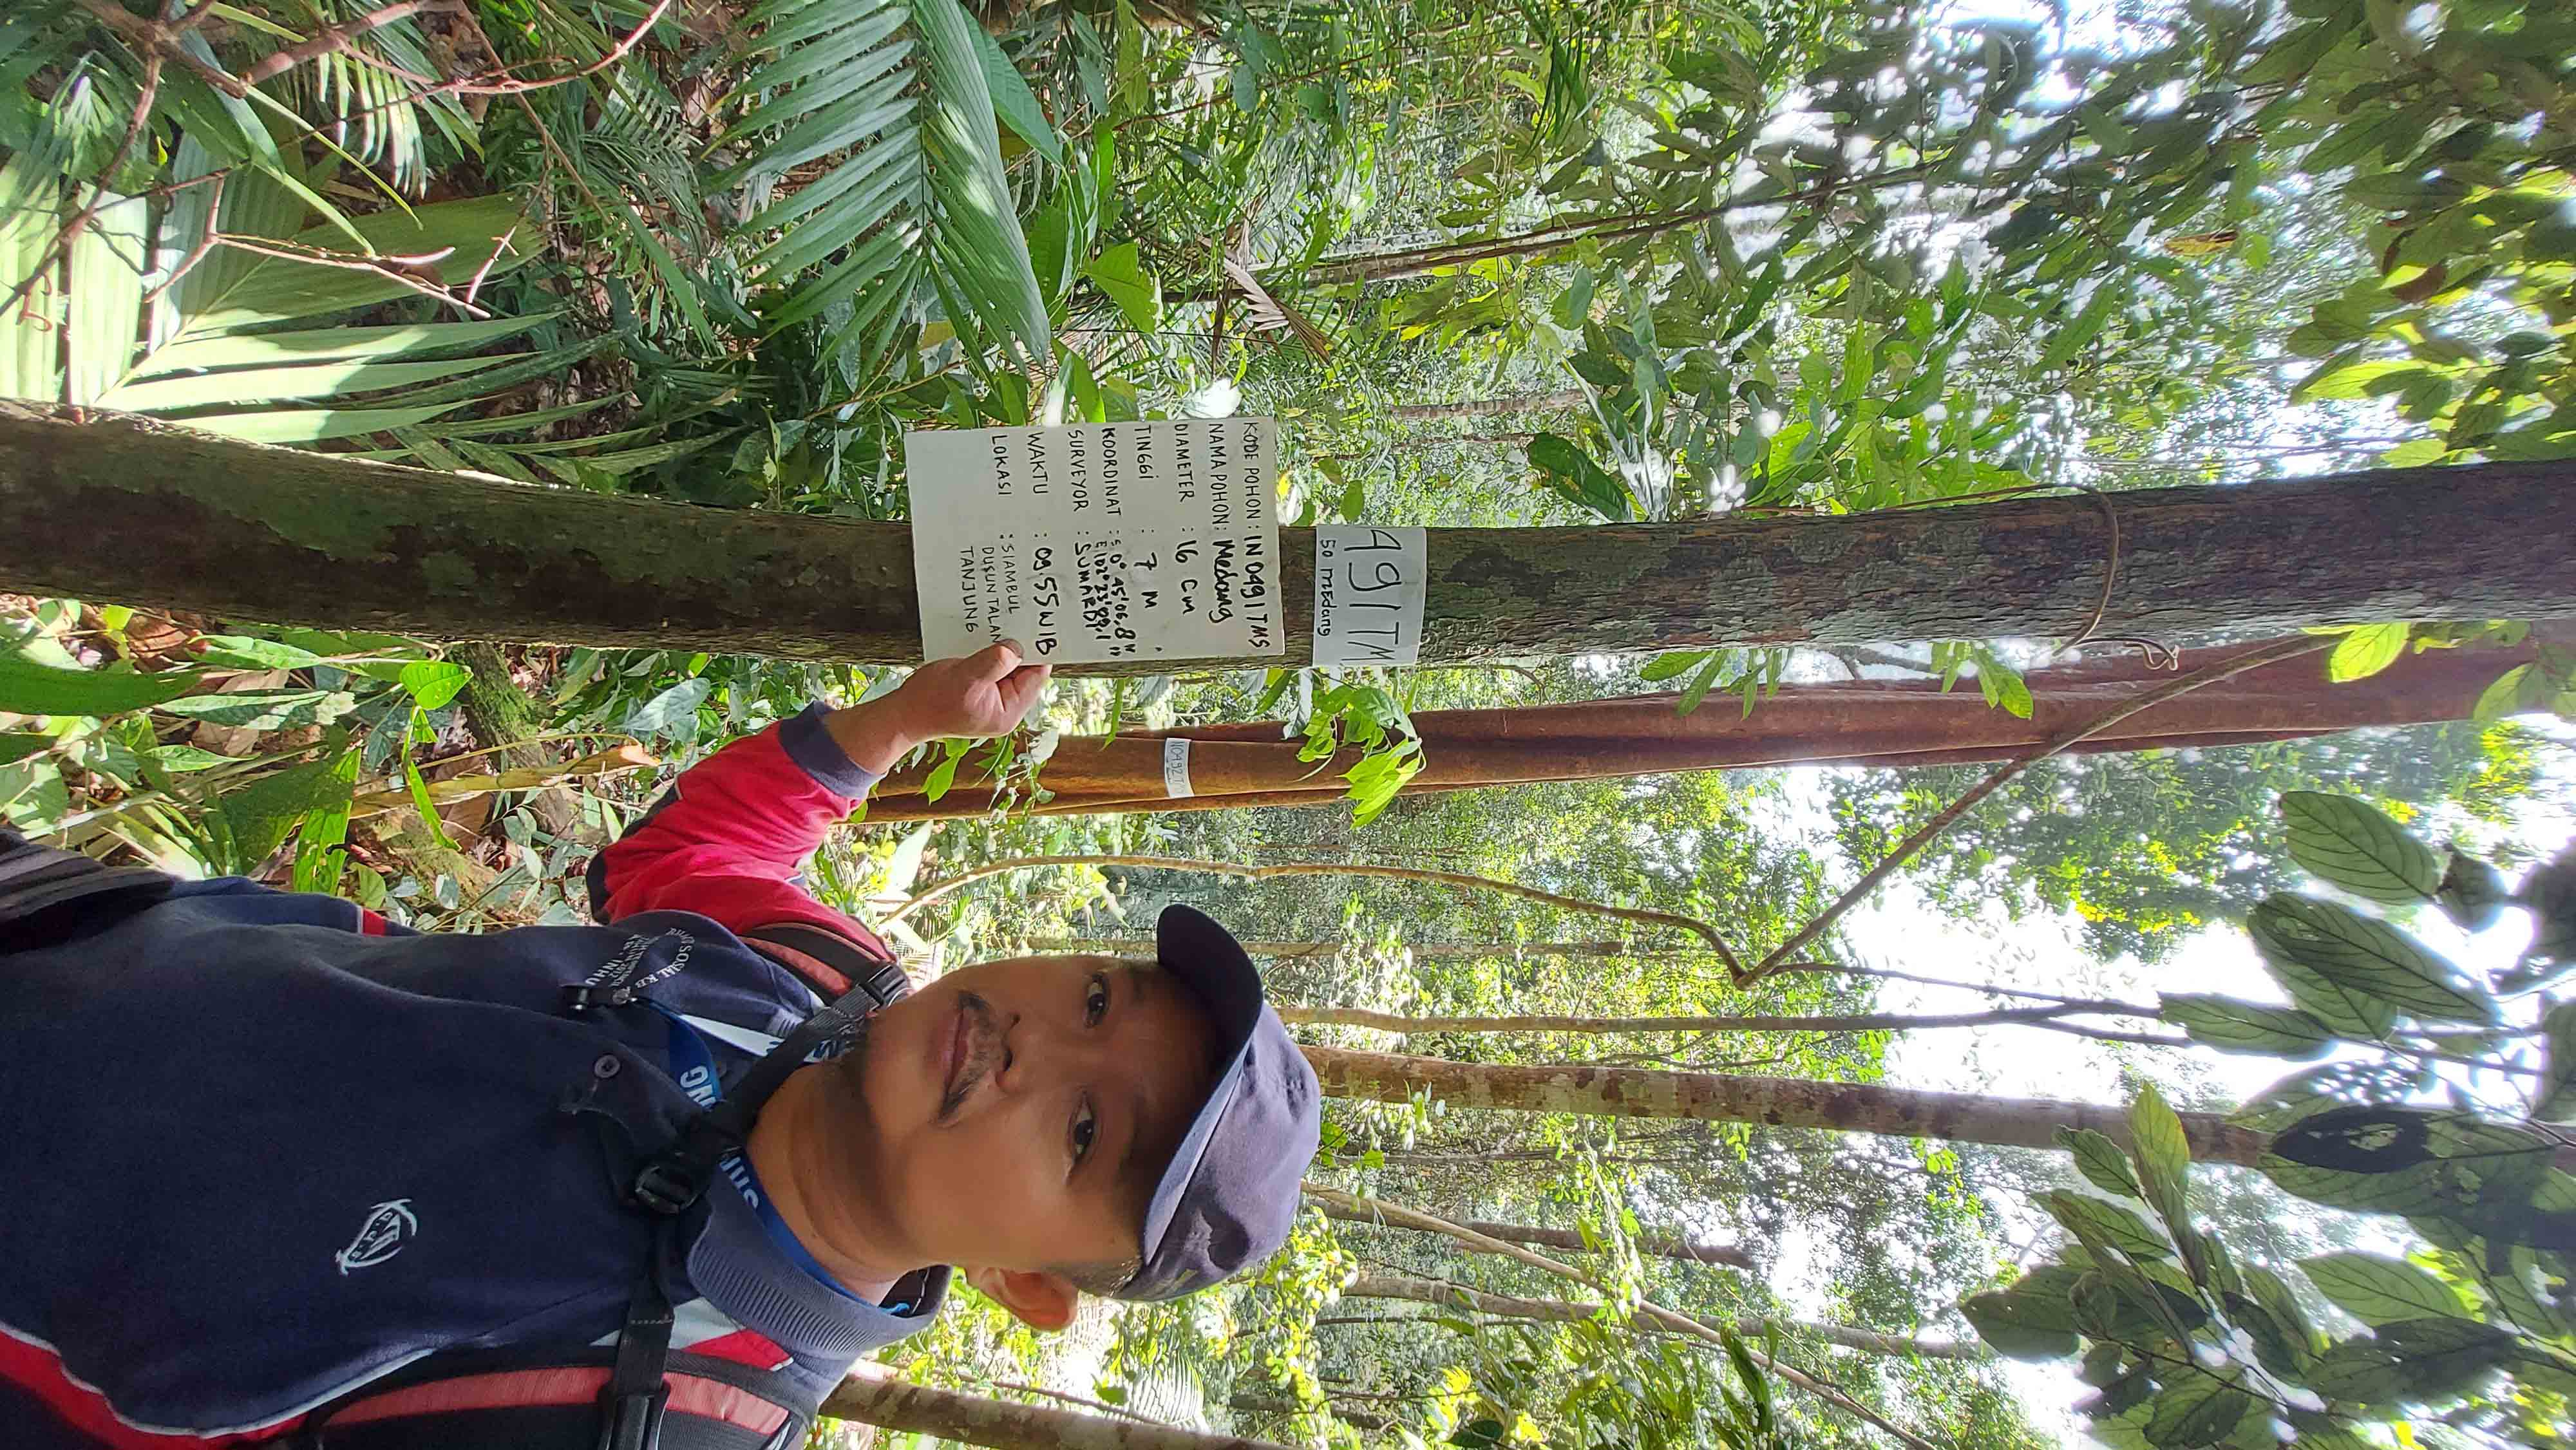 491TM
50 MEdang
KODE POHON : IN0491TMS
NAMA POHON : Medang
DIAMETER : 16 Cm
TINGGI : 7 M
KOORDINAT : S 0° 45'06,8"
E 102° 23'09,1"
SURVEYOR : SUMARDI
WAKTU : 09.55 WIB
LOKASI : SIAMBUL
DUSUN TALAN
TANJUNG
N0492T
SOSIAL
INHU